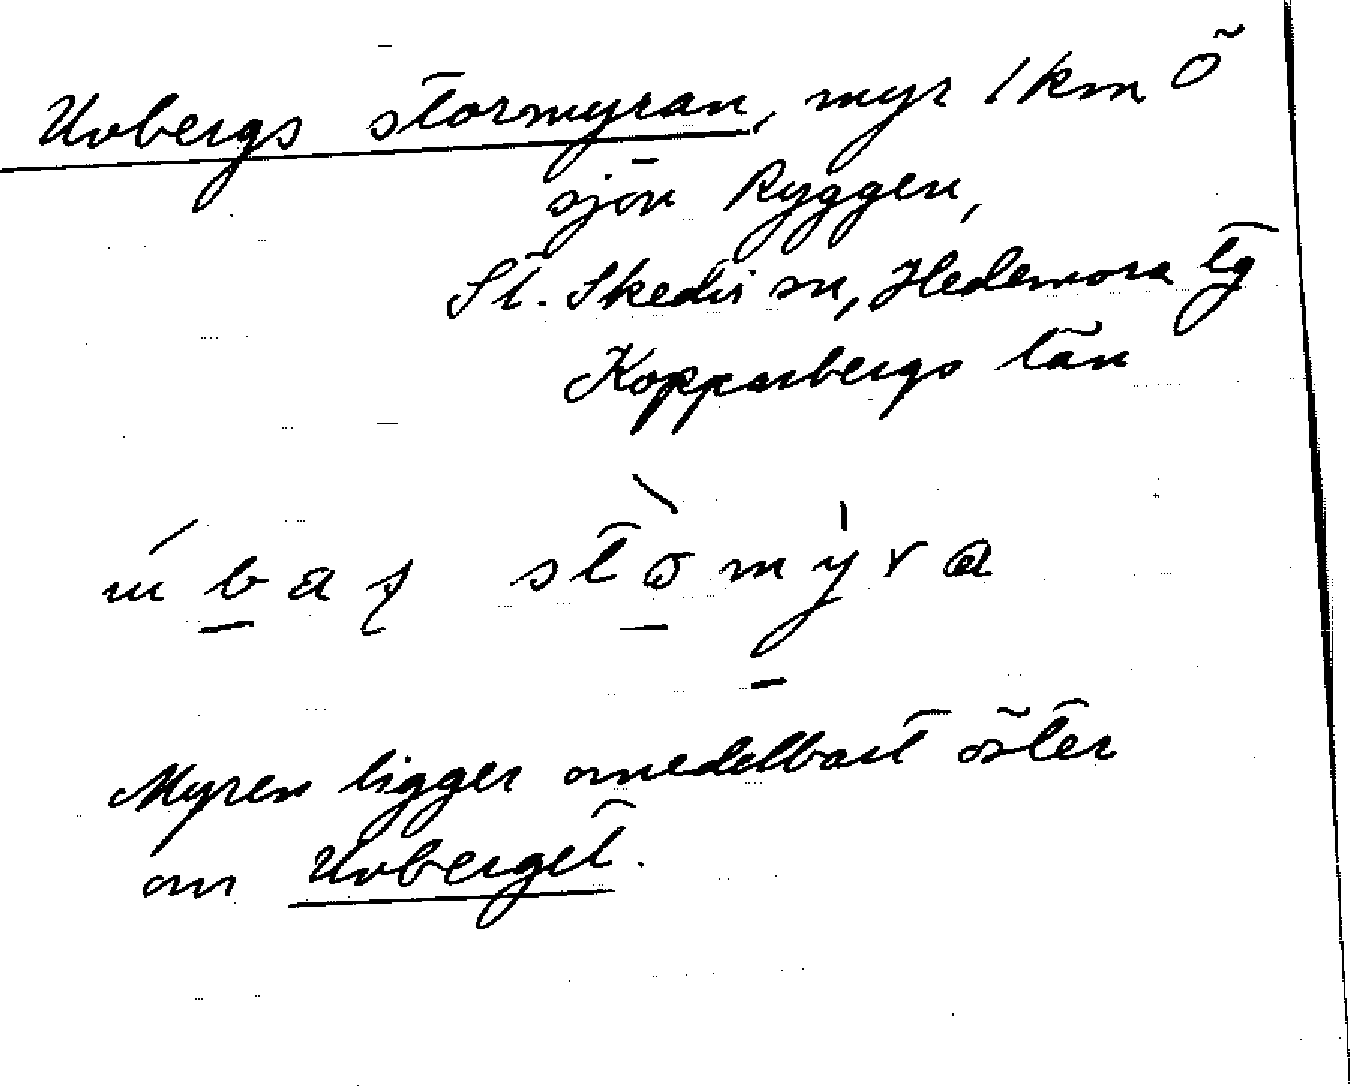 Uvbergs stormyran, myr 1 km Ö
sjön Ryggen,
St. Skedvi sn, Hedemora tg
Kopparbergs län
Myren ligger omedelbart öster
om Uvberget.